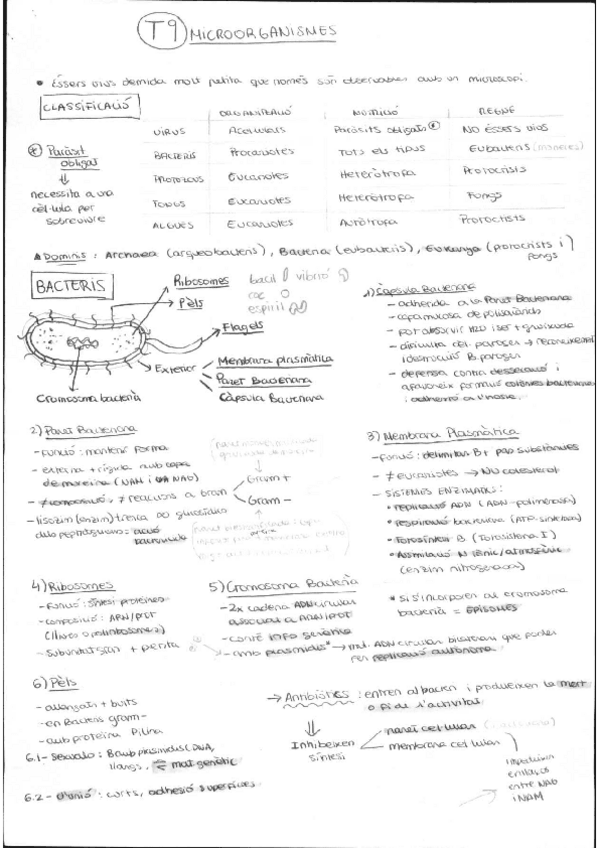 T9 MICROORGANISMES
• Éssers vius de mida molt petita que només són observables amb un microscopi.
CLASSIFICACIÓ
ORGANITZACIÓ NUTRICIÓ REGNE
VIRUS Acel·lulars Paràsits obligats * NO ÉSSERS VIUS
BACTERIS Procariotes TOTS els TIPUS Eubacteris (moneres)
PROTOZOUS Eucariotes Heteròtrofa Protoctists
FONGS Eucariotes Heteròtrofa Fongs
ALGUES Eucariotes Autòtrofa Protoctists
* Paràsit
obligat
necessita a una
cèl·lula per
sobreviure
Dominis: Archaea (arqueobacteris), Bacteria (eubacteris), Eukarya (protoctists i
fongs
BACTERIS
Ribosomes
Pèls
Flagels
Exterior
Membrana plasmàtica
Paret Bacteriana
Càpsula Bacteriana
Cromosoma bacterià
bacil vibrió
coc
espiril
1) Càpsula Bacteriana
- adherida a la Paret Bacteriana
- capa mucosa de polisacàrids
- pot absorvir H2O i ser + gruixuda
- dificulta cèl. patoges → reconeixement
i destrucció B. patogen
- defensa contra dessecació i
afavoreix formació colònies bacterianes
i adherència
2) Paret Bacteriana
- Funció: mantenir forma
- externa + rígida amb capa
de mureina (NAM i NAG)
- ≠ composició, ≠ reaccions a Gram
Gram +
Gram -
- lisozim (enzim) trenca
dels peptidoglicans:
3) Membrana Plasmàtica
- Funció: delimitar B + pas substàncies
- ≠ eucariotes → NO colesterol
- SISTEMES ENZIMÀTICS:
• replicació ADN (ADN-polimerasa)
• respiració bacteriana (ATP-sintetasa)
• Fotosíntesi B (Fotosistema I)
• Assimilació N iònic/atmosfèric
(enzim nitrogenasa)
4) Ribosomes
- Funció: síntesi proteïnes
- composició: ARN/prot
(lliures o polirribosomes)
- Subunitat gran + petita
5) Cromosoma Bacterià
- 2x cadena ADN circular
associat a ARN/prot
- conté info genètica
- amb plàsmidis* → mol. ADN circular bicatenari que poden
fer replicació autònoma
* si s'incorporen al cromosoma
bacterià = EPISOMES
6) Pèls
- allargats + buits
- en Bacteris gram-
- amb proteïna Pilina
6.1 - Sexuals: B amb plasmidis (DNA,
llargs, mat genètic
6.2 - d'unió: curts, adhesió superfícies
→ Antibiòtics: entren al bacteri i produeixen la mort
o fi de l'activitat
Inhibeixen
síntesi
paret cel·lular
membrana cel·lular
impedeixen
enllaços
entre NAG
i NAM